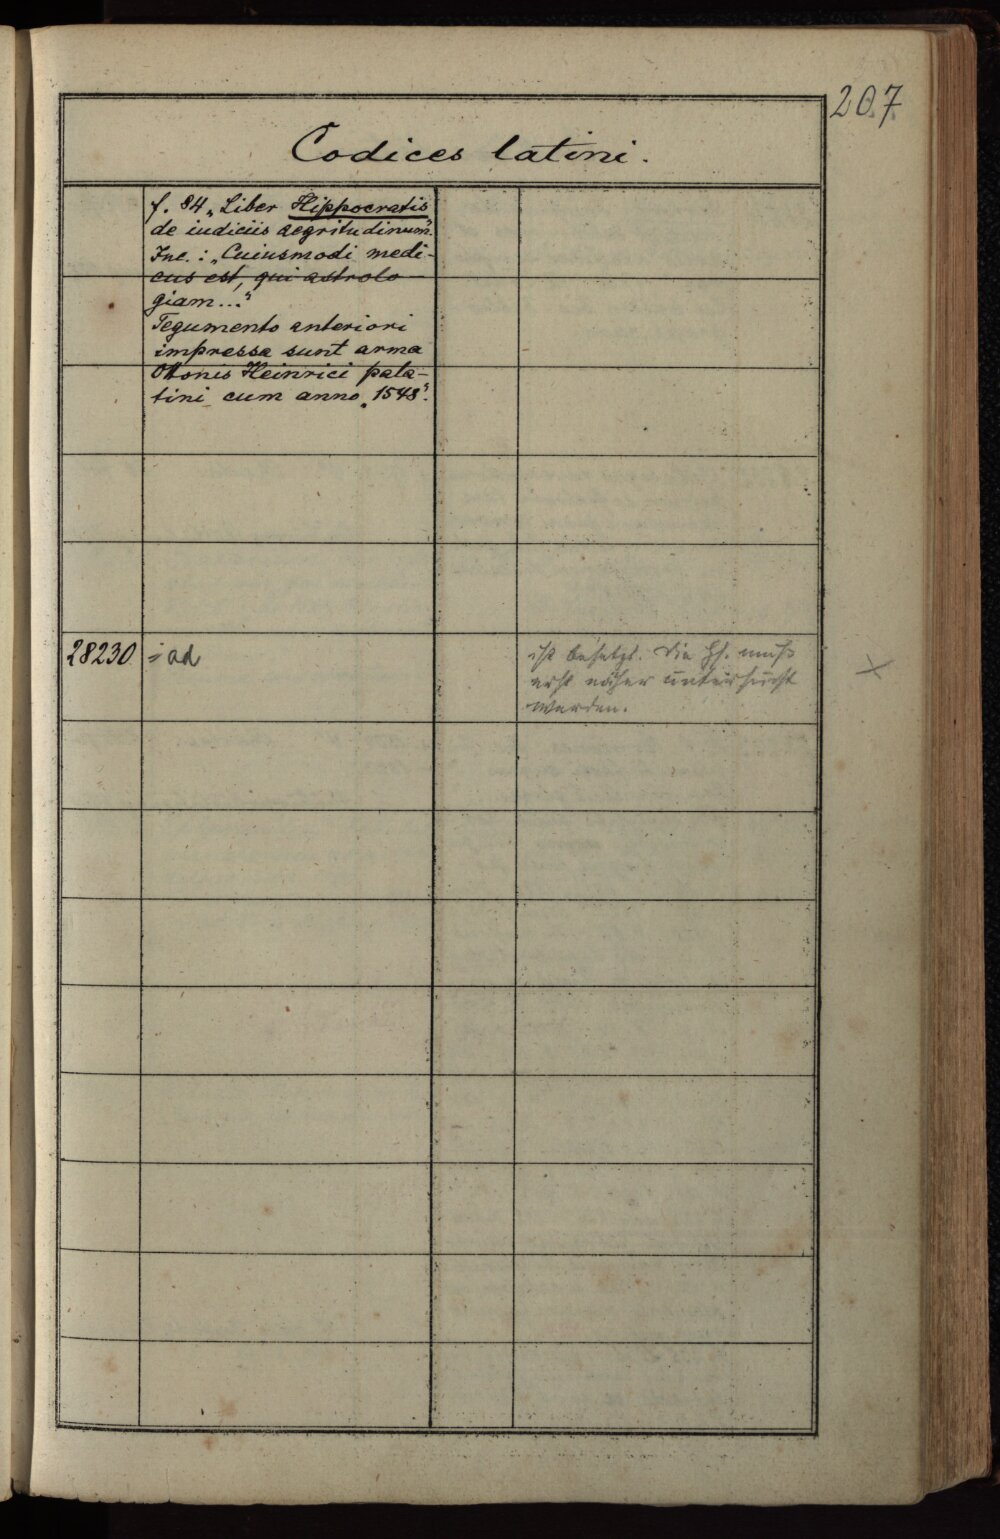 207
Codices latini.
f. 84 „Liber Hippocratis
de iudiciis aegritudinum".
Inc.: „Cuiusmodi medi-
cus est, qui astrolo
giam..."
Tegumento anteriori
impressa sunt arma
Ottonis Heinrici pala-
tini cum anno „1548".
28230 = ad
ist besetzt. Die Hs. muß
erst näher untersucht
werden.
×